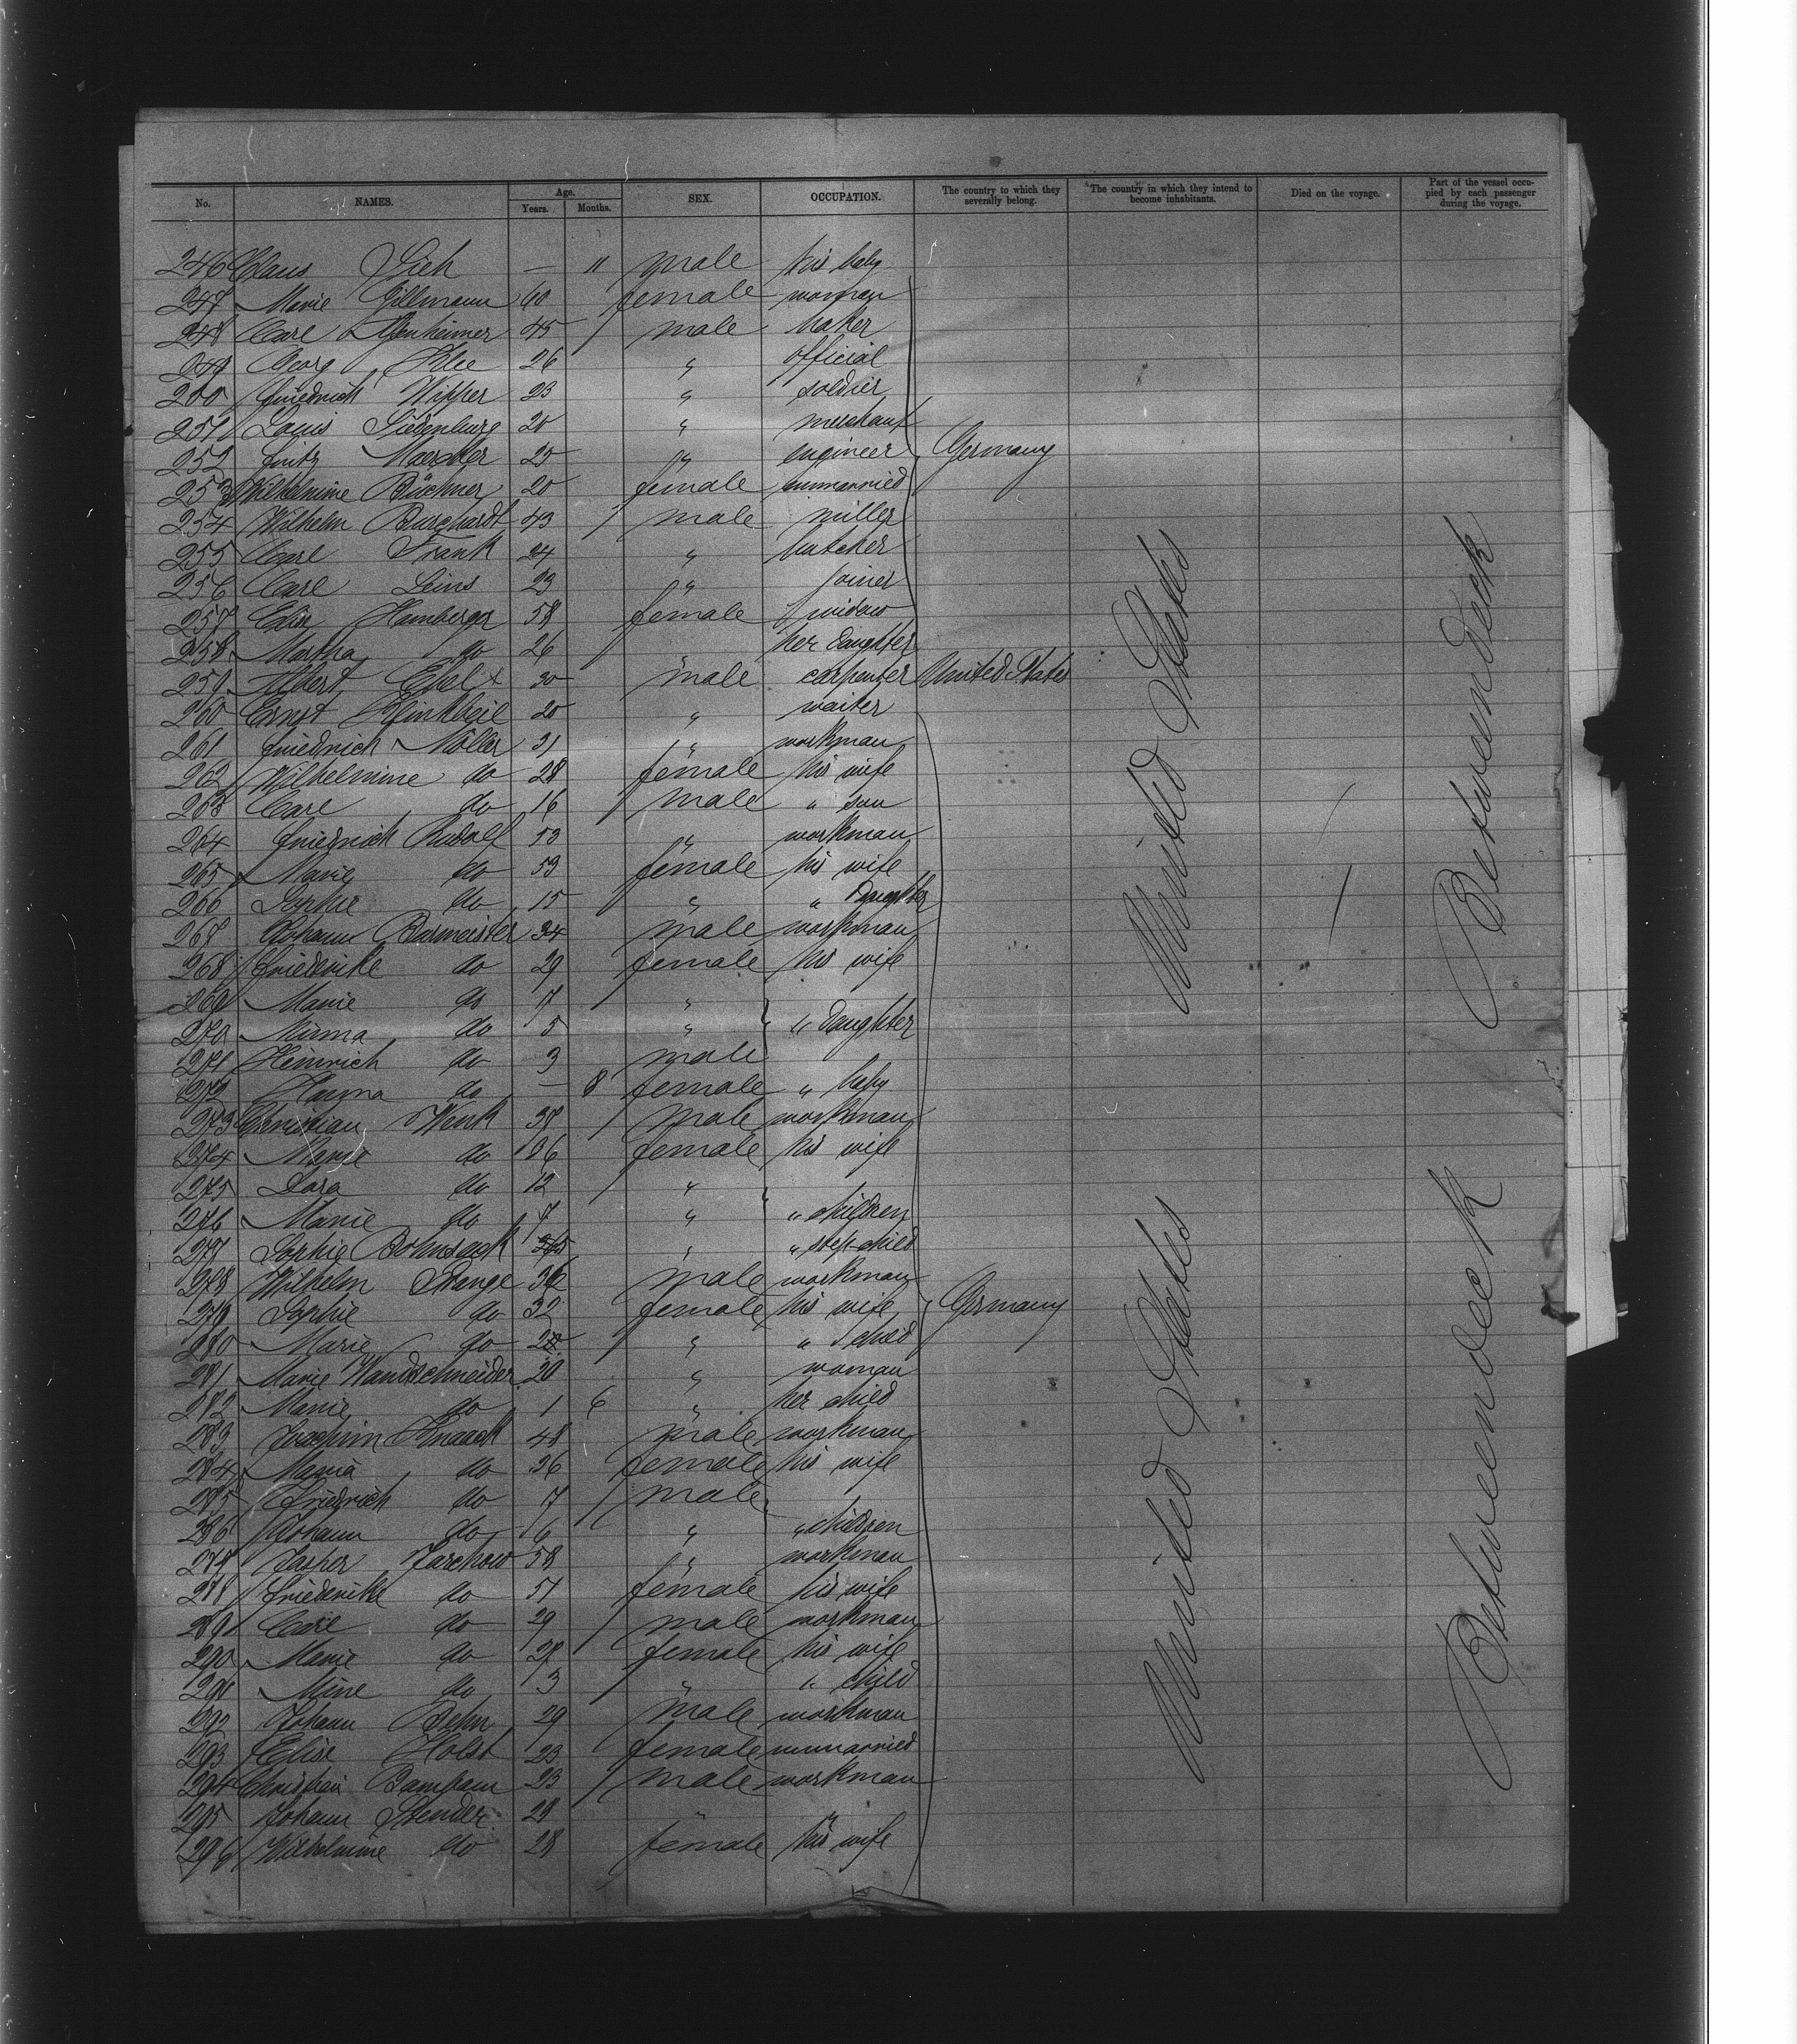 No. NAMES. Age. Years. Months. SEX. OCCUPATION. The country to which they severally belong. The country in which they intend to become inhabitants. Died on the voyage. Part of the vessel occupied by each passenger during the voyage.
246 Claus Sieh — 11 male his baby
247 Marie Gillmann 60 female woman
248 Carl 45 male baker
249 Georg Klee 26 " official
250 Friedrich Wipper 23 " soldier
251 Louis Südenburg 20 " merchant
252 Fritz 25 " engineer Germany
253 Wilhelmine Büchner 20 female unmarried
254 Wilhelm Burchardt 43 male miller
255 Carl Frank 24 " butcher
256 Carl Leins 23 " joiner
257 Elis Hamberger 58 female widow
258 Martha do 26 her daughter
259 Albert Ebel 30 male carpenter United States
260 Ernst Klinkbeil 20 " waiter
261 Friedrich Möller 31 " workman
262 Wilhelmine do 28 female his wife
263 Carl do 16 male " son
264 Friedrich Rudolf 53 " workman
265 Marie do 53 female his wife
266 Sophie do 15 " " daughter
267 Johann Burmeister 34 male workman
268 Friederike do 29 female his wife
269 Marie do 7 "
270 Minna do 5 " " daughter
271 Heinrich do 3 male
272 do — 8 female " baby
273 Christian Wenk 38 male workman
274 Marie do 36 female his wife
275 Dora do 12 "
276 Marie do 7 " " children
277 Sophie Bohnsack " " step-child
278 Wilhelm Stange 36 male workman
279 Sophie do 32 female his wife Germany
280 Marie do " " child
281 Marie Wandschneider 20 " woman
282 Marie do 1 6 " her child
283 Joachim Knaack 48 male workman
284 Maria do 36 female his wife
285 Friedrich do 7 male
286 Johann do 6 " " children
287 Jasper Jarchow 58 " workman
288 Friederike do 51 female his wife
289 Carl do 29 male workman
290 Marie do 28 female his wife
291 Mine do 3 " " child
292 Johann Behn 29 male workman
293 Elise Holst 23 female unmarried
294 Christian 23 male workman
295 Johann Stender 28 " "
296 Wilhelmine do 28 female his wife
United States
United States
Betweendeck
Betweendeck